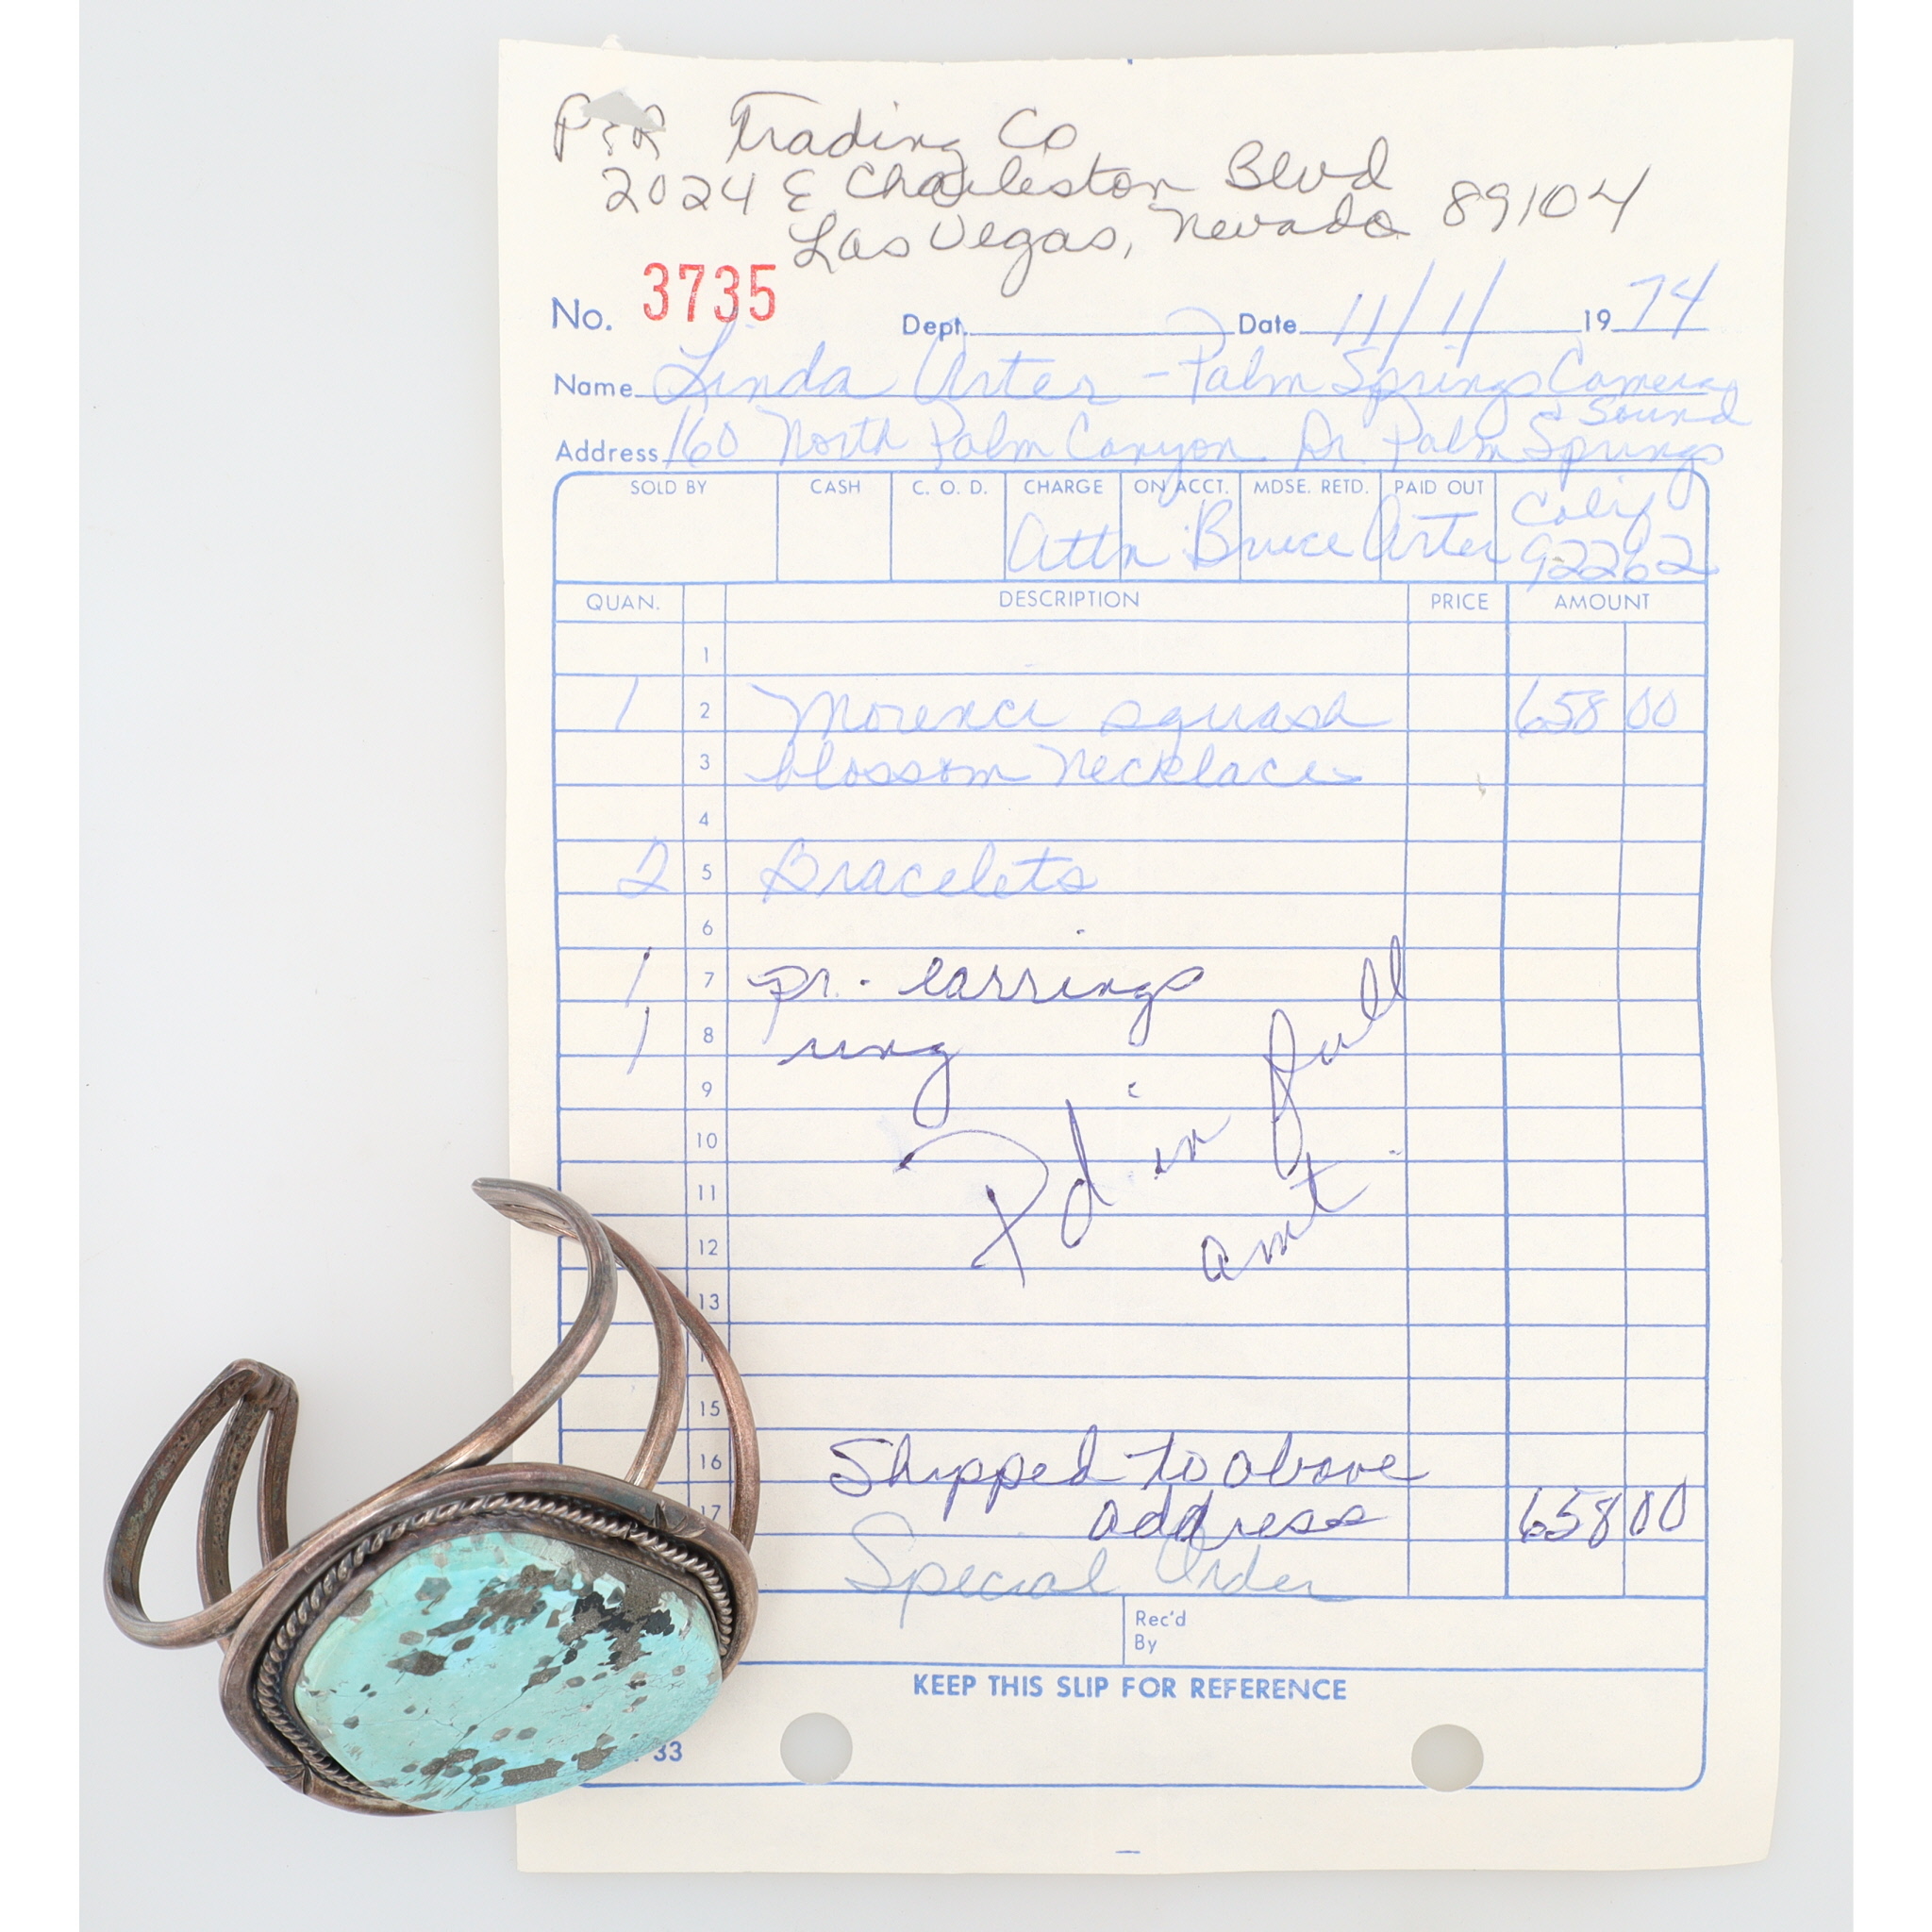 P&R Trading Co
2024 E Charleston Blvd
Las Vegas, Nevada 89104
No. 3735 Dept. Date 11/1/ 19 74
Name Linda Arter - Palm Springs Camera
& Sound
Address 160 North Palm Canyon Dr. Palm Springs
SOLD BY CASH C. O. D. CHARGE ON ACCT. MDSE. RETD. PAID OUT Calif
Attn Bruce Arter 92262
QUAN. DESCRIPTION PRICE AMOUNT
1
1 2 Morenci squash 658 00
3 blossom necklace
4
2 5 Bracelets
6
1 7 pr. earrings
1 8 ring
9
10
Pd in full
11
amt
12
13
15
16 Shipped to above
17 address 658 00
Special Order
Rec'd
By
KEEP THIS SLIP FOR REFERENCE
33